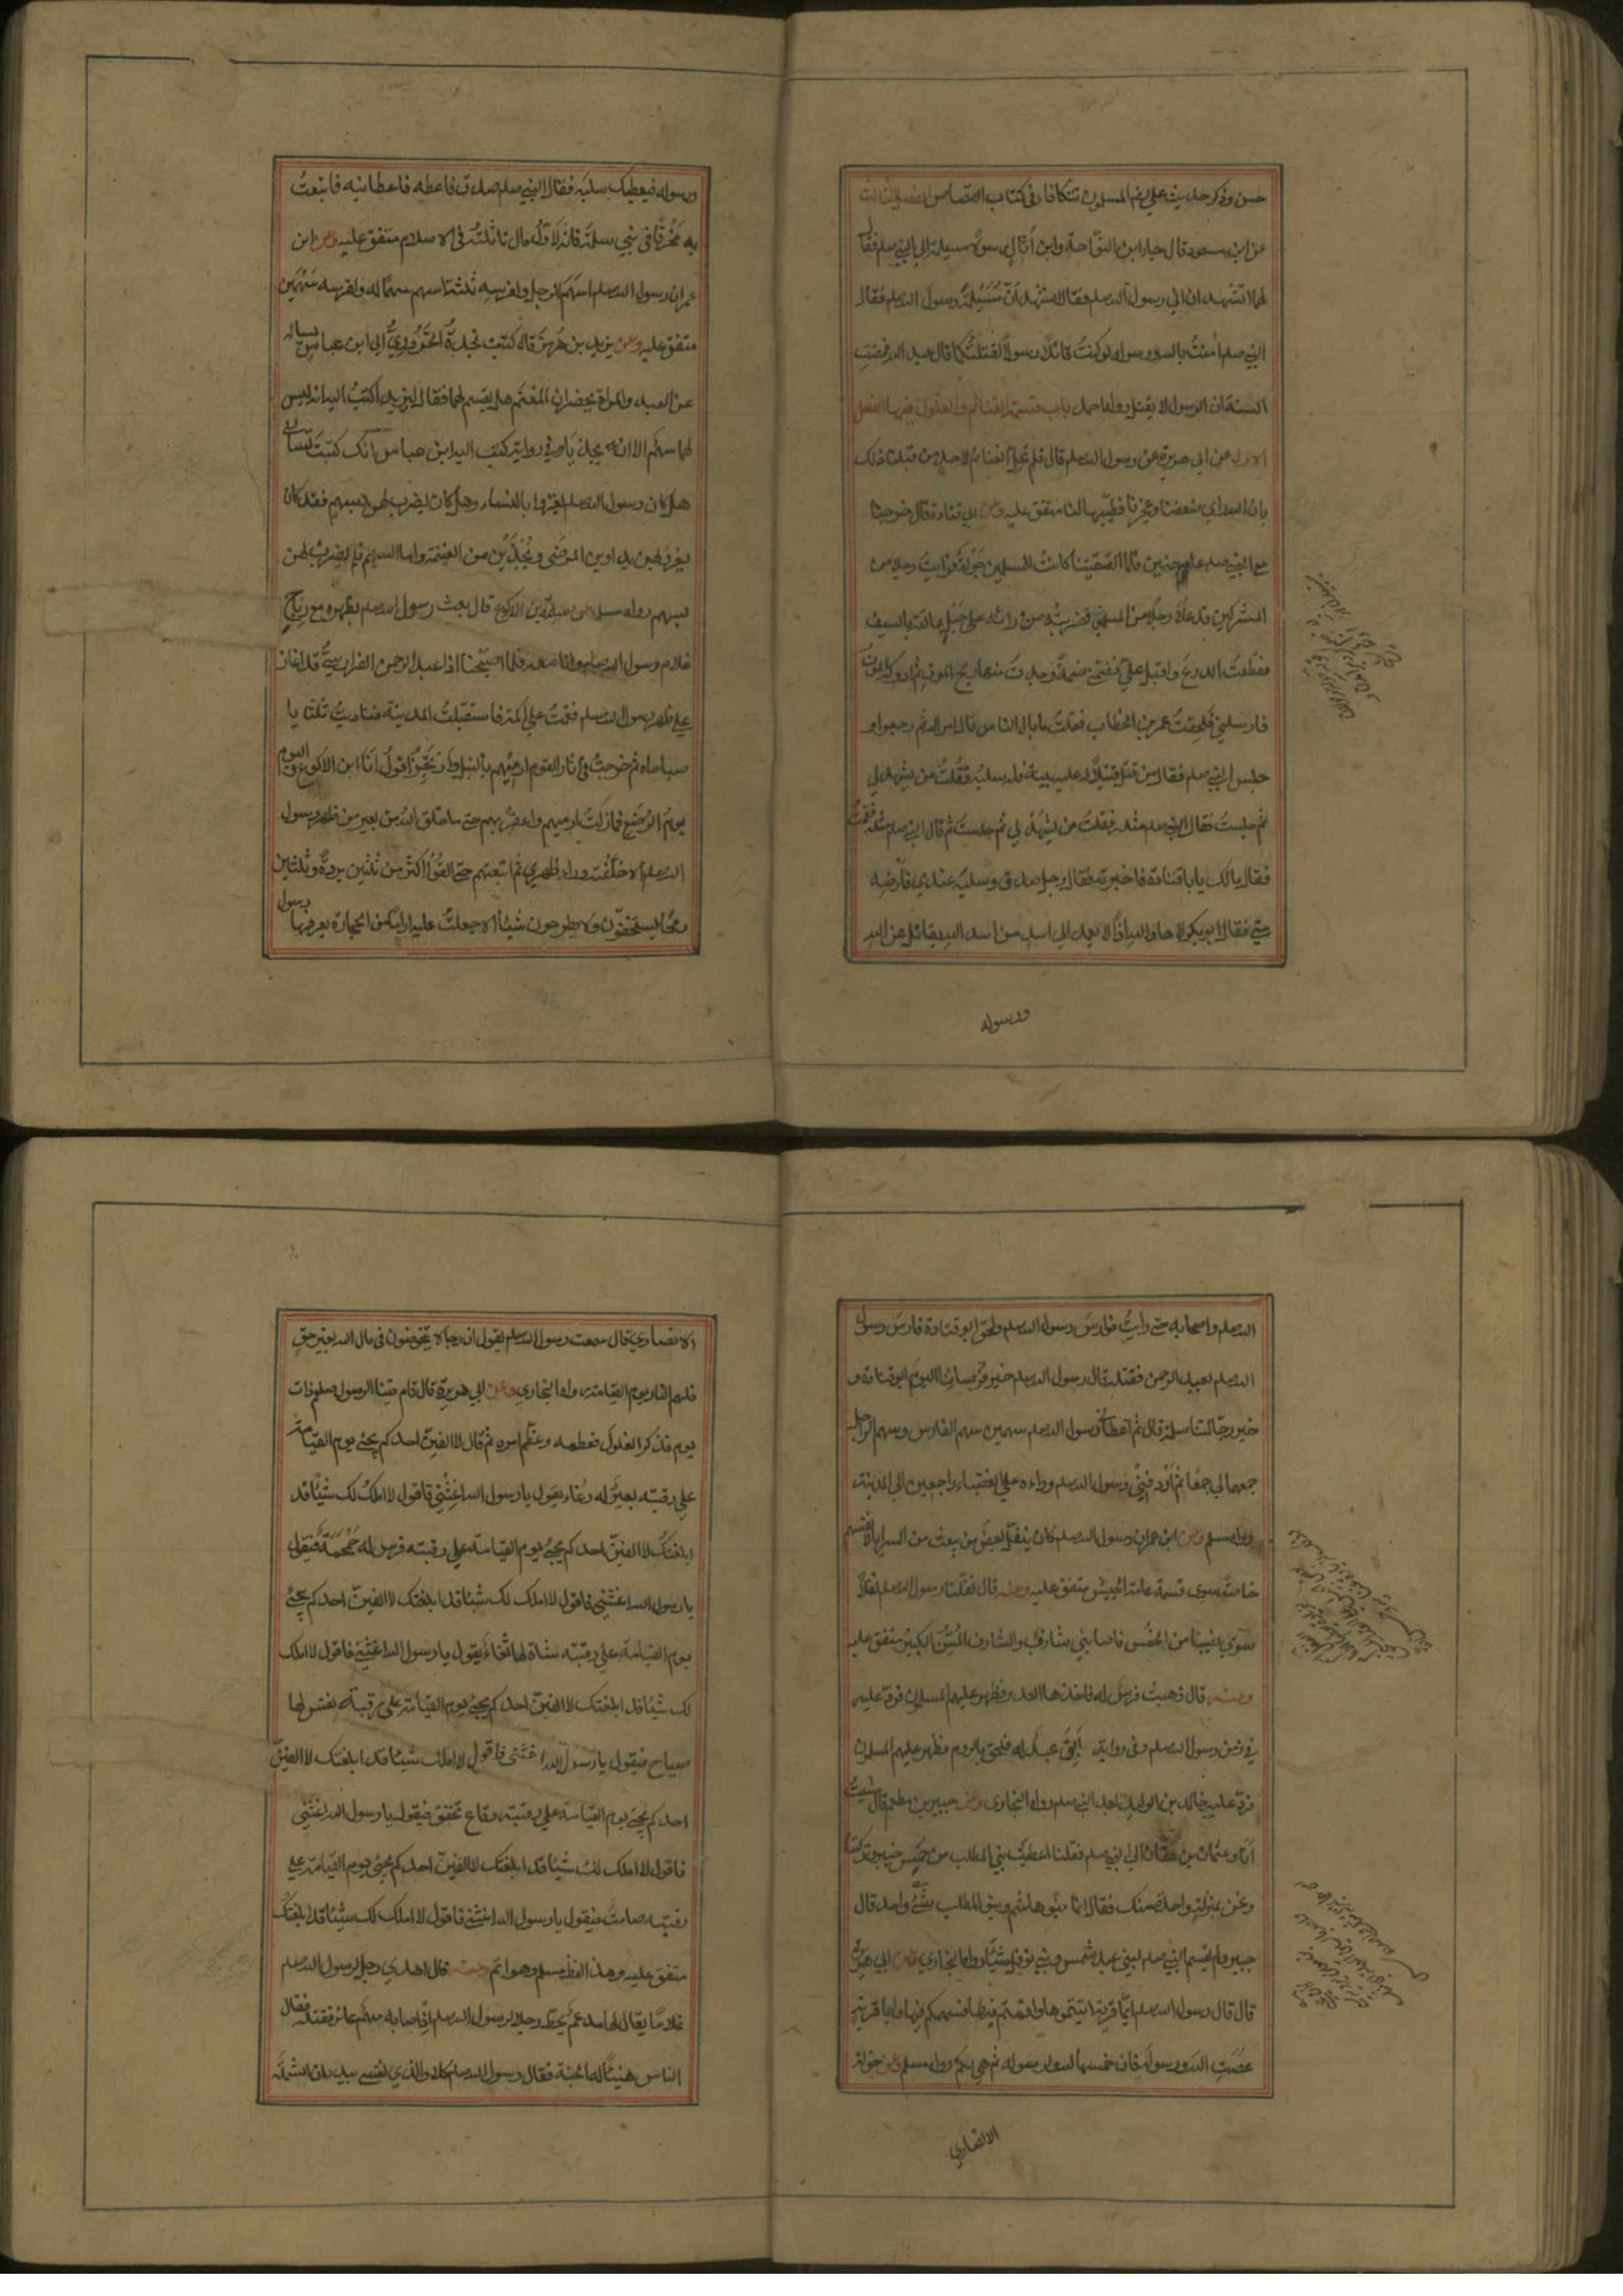 حسن وذكر حديث علي رضم المسلمون تتكافاء في كتاب القصاص الفصل الثالث
عن ابن مسعود قال جاء ابن النوّاحة وابن أثال رسولا مسيلمة الى النبي صلم فقال
لهما اتشهدان اني رسول الله صلم فقالا نشهد انّ مُسَيْلِمَةَ رسول الله صلم فقال
النبي صلم امنتُ بالله ورسوله لو كنتُ قاتلا رسولاً لقتلتُكما قال عبد الله فمضتِ
السنة ان الرسول لا يقتل رواه احمد باب قسمة الغنائم والغلول فيها الفصل
الاول عن ابي هريرة عن رسول الله صلم قال فلم تحل الغنائمُ لاحد من قبلنا ذلك
بان الله راي ضعفنا وعجزنا فطيّبها لنا متفق عليه وعن ابي قتادة قال خرجنا
مع النبي صلم عام حنين فلما التقينا كانتْ للمسلمين جَوْلَةٌ فرايتُ رجلا من
المشركين قد علا رجلا من المسلمين فضربتُه من ورائه على حَبْلِ عاتقه بالسيف
فقطعتُ الدرعَ واقبل عليّ فضمّني ضمةً وجدتُ منها ريح الموت ثم ادركه الموتُ
فارسلني فلحِقتُ عمر بن الخطاب فقلتُ ما بال الناس قال امر الله ثم رجعوا و
جلس النبي صلم فقال من قتل قتيلاً له عليه بينة فله سلبُه فقُلتُ من يشهد لي
ثم جلستُ فقال النبي صلم مثله فقلتُ من يشهدُ لي ثم جلستُ ثم قال النبي صلم مثله فقمتُ
فقال مالك يا باقتادة فاخبرته فقال رجل صدق وسلبُه عندي فارضِه
منّي فقال ابو بكر لا ها والله اذًا لا يعمد الى اسد من اسد الله يقاتل عن الله
ورسوله
ورسوله فيعطيك سلبَه فقال النبي صلم صدق فاعطه فاعطانيه فابتعتُ
به مَخْرَفًا في بني سلمة فانه لاوّلُ مال تاثّلتُه في الاسلام متفق عليه وعن ابن
عمر ان رسول الله صلم اسهَمَ للرجل ولفرسِه ثلثة اسهم سهمًا له ولفرسه سَهْمَين
متفق عليه وعن يزيد بن هُرمز قال كتب نجدةُ الحَرُورِيُّ الى ابن عباس يساله
عن العبد والمراة يحضران المغنم هل يقسم لهما فقال ليزيد اكتُبْ اليه انه ليس
لهما سهمٌ الا ان يحذيا وفي رواية كتب اليه ابن عباس انك كتبتَ تسالني
هل كان رسول الله صلم يغزوا بالنساء وهل كان يضرب لهن بسهم فقد كان
يغزو بهن يداوين المرضى ويُحْذَيْن من الغنيمة واما السهم فلم يضربْ لهن
بسهم رواه مسلم وعن سلمة بن الاكوع قال بعث رسول الله صلم بظهره مع رباح
غلام رسول الله صلم وانا معه فلما اصبحنا اذا عبد الرحمن الفزاريُّ قد اغار
على ظهر رسول الله صلم فقمتُ على اكمة فاستقبلتُ المدينة فناديتُ ثلثا يا
صباحاه ثم خرجتُ في اثار القوم ارميهم بالنبل وارتجزُ اقولُ انا ابن الاكوع واليوم
يومُ الرُضَّع فما زلتُ ارميهم واعقِرُ بهم حتى ما خلق الله من بعير من ظهر رسول
الله صلم الا خلّفت وراء ظهري ثم اتبعتهم حتى القَوْا اكثر من ثلثين بردة وثلثين
رمحًا يستخفّون ولا يطرحون شيئا الا جعلتُ عليه اراما من الحجارة يعرفها رسول
الله صلم واصحابه حتى رايتُ فوارسَ رسول الله صلم ولحق ابو قتادة فارسَ رسول
الله صلم بعبد الرحمن فقتله قال رسول الله صلم خير فرساننا اليومَ ابو قتادة و
خير رجّالتنا سلمةُ قال ثم اعطاني رسول الله صلم سهمين سهم الفارس وسهم الراجل
جمعهما لي جمعًا ثم اَرْدفني رسول الله صلم وراءه على العضباء راجعين الى المدينة
رواه مسلم وعن ابن عمر ان رسول الله صلم كان ينفّل بعضَ من يبعث من السرايا لانفسهم
خاصّة سوى قسمة عامة الجيش متفق عليه وعنه قال نفّلنا رسول الله صلم نفلًا
سوى نصيبنا من الخمُس فاصابني شارفٌ والشارف المُسِنُّ الكبيرُ متفق عليه
وعنه قال ذهبتْ فرسٌ له فاخذها العدو فظهر عليهم المسلمون فردّ عليه
في زمن رسول الله صلم وفي رواية اَبَقَ عبدٌ له فلحق بالروم فظهر عليهم المسلمون
فردّ عليه خالد بن الوليد بعد النبي صلم رواه البخاري وعن جبير بن مطعم قال مشيتُ
انا وعثمان بن عفّان الى النبي صلم فقلنا اعطيتَ بني المطلب من خُمس خيبر وتركتنا
ونحن بمنزلة واحدة منك فقال انما بنو هاشم وبنو المطلب شيءٌ واحد قال
جبير ولم يقسم النبي صلم لبني عبد شمس وبني نوفل شيئًا رواه البخاري وعن ابي هريرة
قال قال رسول الله صلم ايّما قرية اتيتموها واقمتم فيها فسهمكم فيها وايما قريةٍ
عصَتِ الله ورسولَه فان خمسها لله ولرسوله ثم هي لكم رواه مسلم وعن خولة
الانصاري
الانصاري قال سمعت رسول الله صلم يقول ان رجالا يتخوّضون في مال الله بغير حق
فلهم النار يوم القيامة رواه البخاري وعن ابي هريرة قال قام فينا الرسول صلم ذات
يوم فذكر الغلول فعظمه وعظّم امره ثم قال لا الفينّ احدكم يجيء يوم القيامة
على رقبته بعيرٌ له رُغاء يقول يا رسول الله اغِثْني فاقول لا املكُ لك شيئًا قد
ابلغتك لا الفينّ احدكم يجيء يوم القيامة على رقبته فرس له حَمْحَمَةٌ فيقول
يا رسول الله اغثني فاقول لا املك لك شيئا قد ابلغتك لا الفينّ احدكم يجيء
يوم القيامة على رقبته شاة لها ثُغاءٌ يقول يا رسول الله اغثني فاقول لا املك
لك شيئا قد ابلغتك لا الفينّ احدكم يجيء يوم القيامة على رقبته نفس لها
صياح فيقول يا رسول الله اغثني فاقول لا املك شيئا قد ابلغتك لا الفينّ
احدكم يجيء يوم القيامة على رقبته رقاع تخفق فيقول يا رسول الله اغثني
فاقول لا املك لك شيئا قد ابلغتك لا الفينّ احدكم يجيء يوم القيامة على
رقبته صامتٌ فيقول يا رسول الله اغثني فاقول لا املك لك شيئا قد ابلغتك
متفق عليه وهذا لفظ مسلم وهو اتم وعنه قال اهدي رجل لرسول الله صلم
غلامًا يقال له مدعم يحط رحلا لرسول الله صلم اذ اصابه سهم عائر فقتله فقال
الناس هنيئًا له الجنة فقال رسول الله صلم كلا والذي نفسي بيده ان الشملة